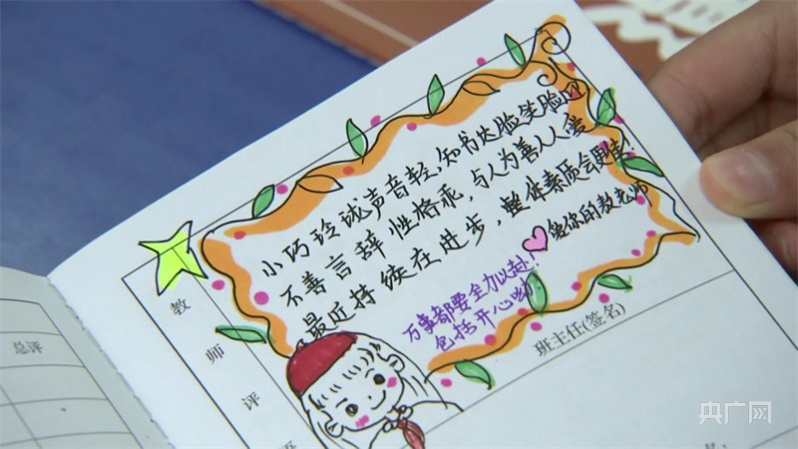 小巧玲珑声音轻,知书达脸笑脸迎
不善言辞性格乖,与人为善人人爱
最近持续在进步,整体素质会更佳.
爱你的数老师
万事都要全力以赴!
包括开心哟
教师评语
班主任(签名)
总评
央广网